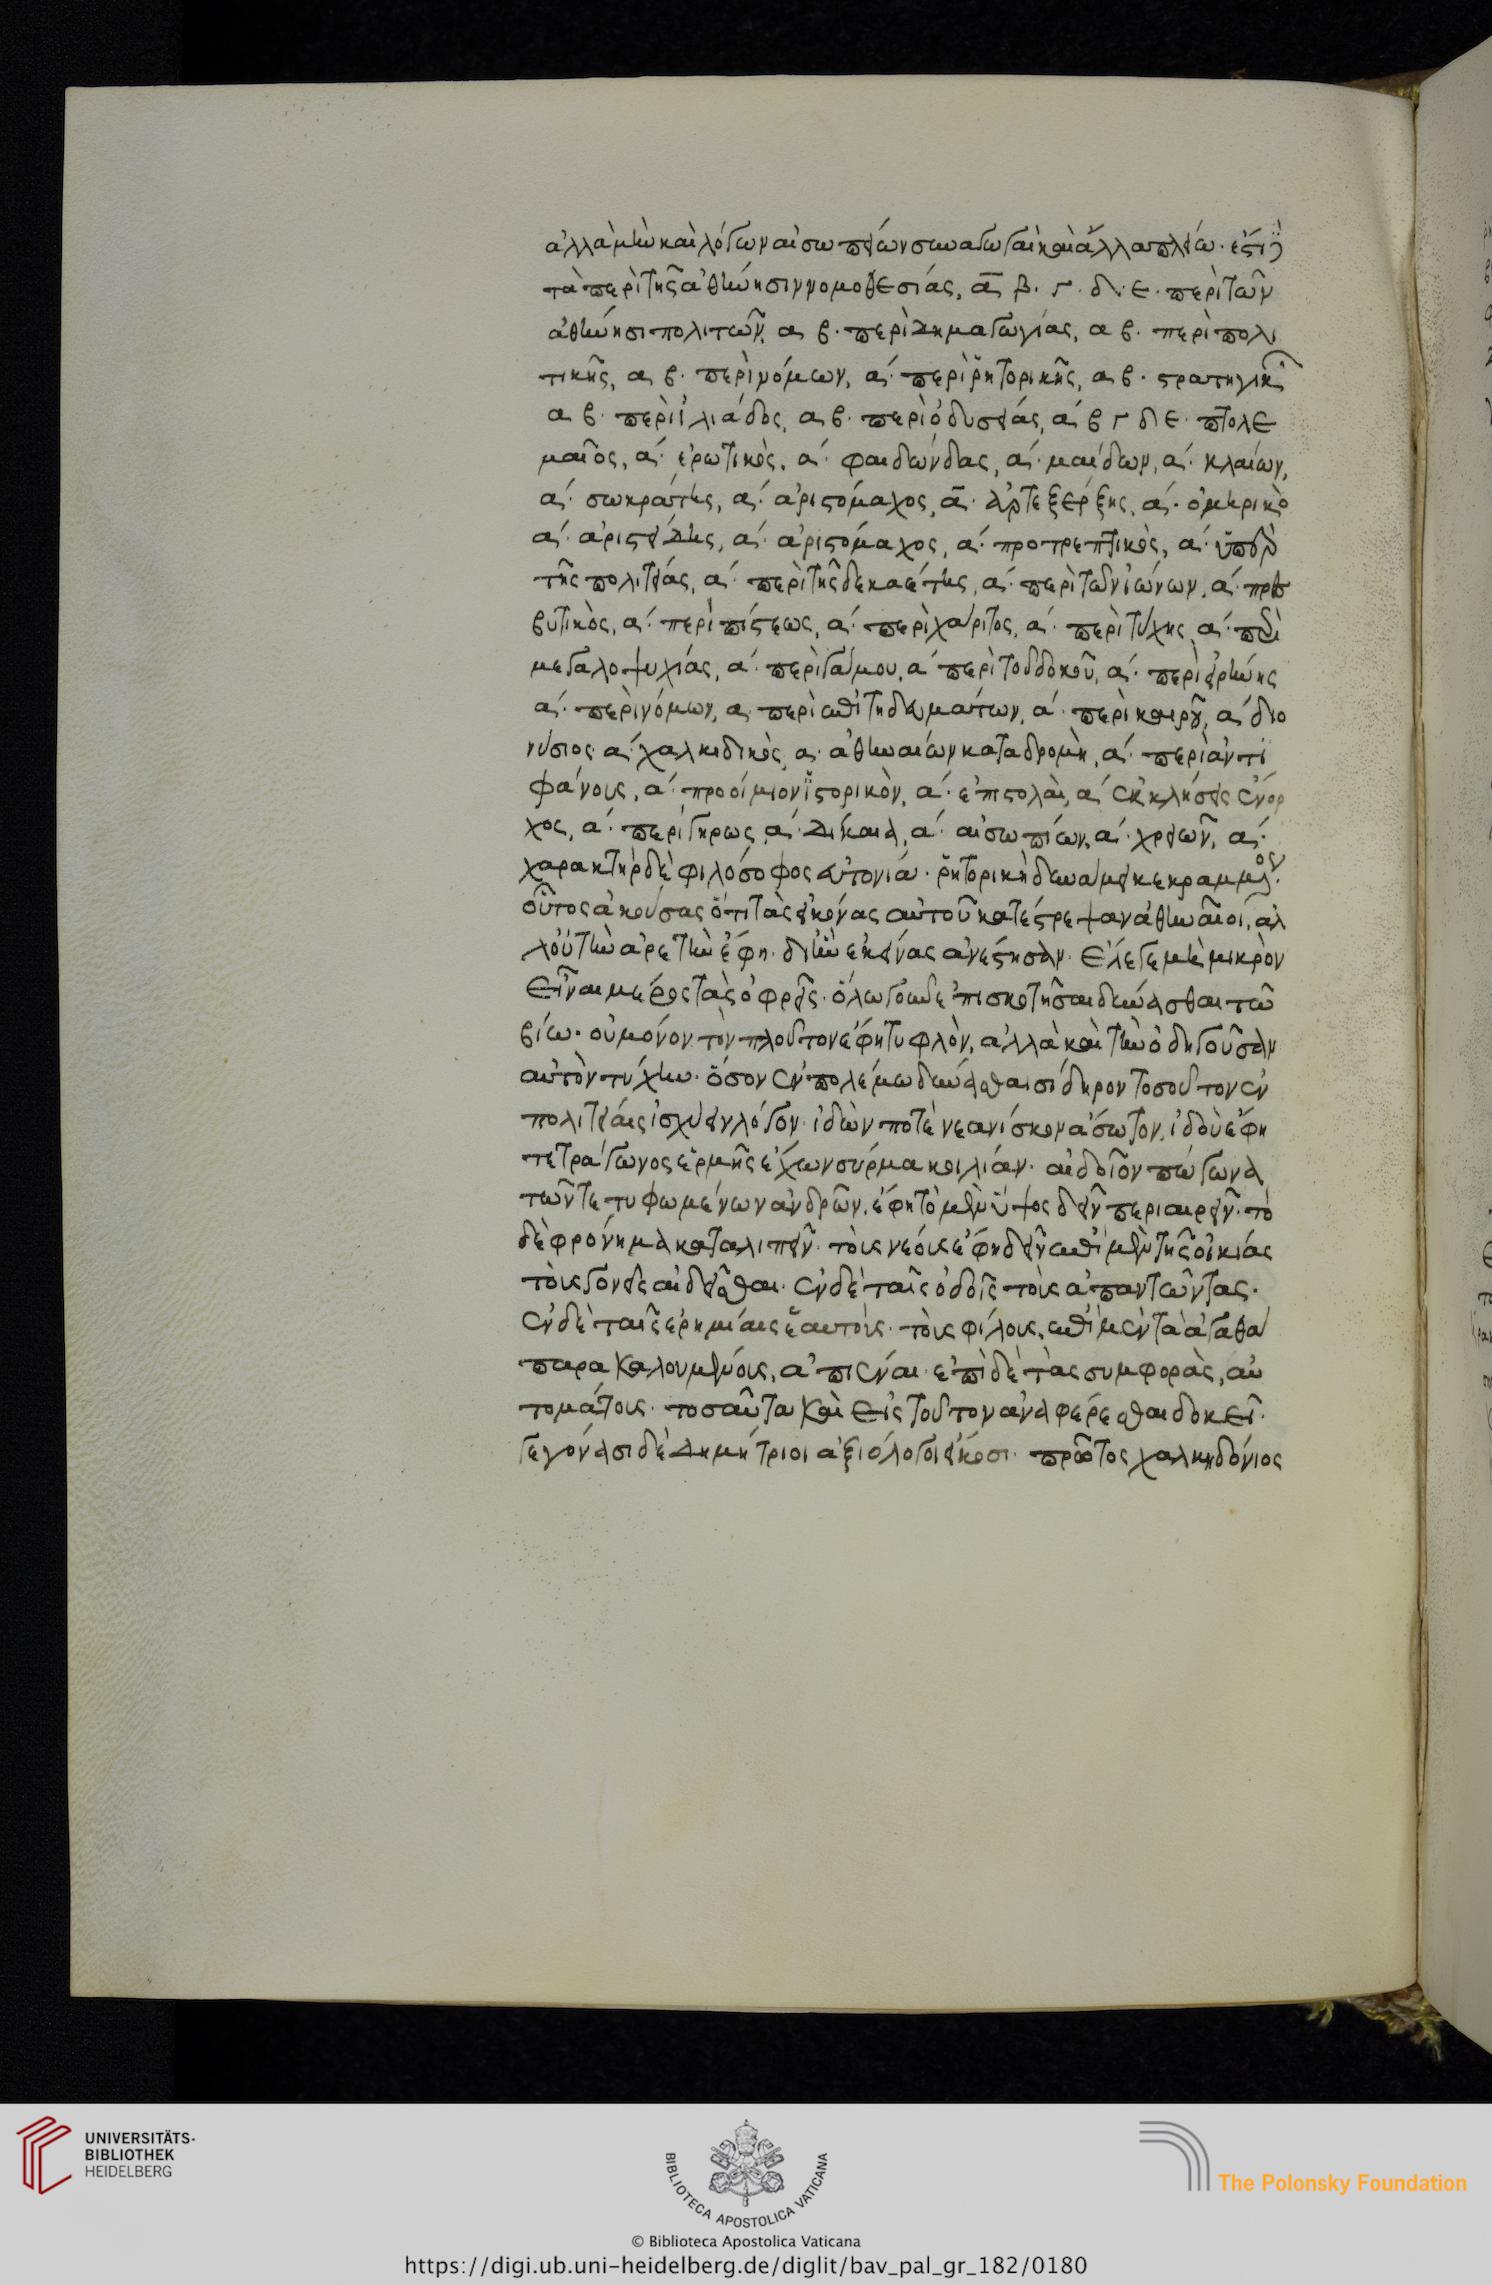 ἀλλὰ μὴν καὶ λόγων αἰσωπείων συναγωγαὶ καὶ ἄλλα πλείω. ἔστι δὲ
τὰ περὶ τῆς ἀθήνησιν νομοθεσίας, α β. γ. δ. ε. περὶ τῶν
ἀθήνησι πολιτῶν, α β. περὶ δημαγωγίας, α β. περὶ πολι
τικῆς, α β. περὶ νόμων, α. περὶ ῥητορικῆς, α β. στρατηγικῶν
α β. περὶ ἰλιάδος, α β. περὶ ὀδυσείας, α β γ δ ε. πτολε
μαῖος, α. ἐρωτικὸς, α. φαιδώνδας, α. μαίδων, α. κλαίων,
α. σωκράτης, α. ἀριστόμαχος, α. ἀρτεξέρξης, α. ὁμηρικὸ
α. ἀριστείδης, α. ἀριστόμαχος, α. προτρεπτικὸς, α. ὑπὲρ
τῆς πολιτείας, α. περὶ τῆς δεκαέτης, α. περὶ τῶν ἰώνων, α. πρεσ
βυτικὸς, α. περὶ πίστεως, α. περὶ χάριτος, α. περὶ τύχης, α. περὶ
μεγαλοψυχίας, α. περὶ γάμου, α περὶ τοῦ δοκοῦ, α. περὶ εἰρήνης
α. περὶ νόμων, α. περὶ ἐπιτηδευμάτων, α. περὶ καιροῦ, α διο
νύσιος α χαλκιδικὸς, α. ἀθηναίων καταδρομὴ, α. περὶ ἀντι
φάνους, α. προοίμιον ἱστορικὸν, α. ἐπιστολαὶ, α ἐκκλήσεις ἐνόρ
χος, α. περὶ γήρως, α. δίκαια, α. αἰσωπίων, α. χρειῶν, α.
χαρακτὴρ δὲ φιλόσοφος εὐτονία. ῥητορικὴ δυνάμει κεκραμμένος.
οὗτος ἀκούσας ὅτι τὰς εἰκόνας αὐτοῦ κατέστρεψαν ἀθηναῖοι, ἀλ
λ' οὐ τὴν ἀρετὴν ἔφη. δι' ἣν ἐκείνας ἀνέστησαν. ἔλεγε μὴ μικρὸν
εἶναι μέρος τὰς ὀφρῦς. ὅλω γοῦν δ' ἐπισκοτῆσαι δύνασθαι τῶ
βίω. οὐ μόνον τὸν πλοῦτον ἔφη τυφλὸν, ἀλλὰ καὶ τὴν ὁδηγοῦσαν
αὐτὸν τύχην. ὅσον ἐν πολέμω δύνασθαι σίδηρον τοσοῦτον ἐν
πολιτείαις ἰσχύειν λόγον. ἰδὼν ποτὲ νεανίσκον ἄσωτον, ἰδοὺ ἔφη
τετράγωνος ἑρμῆς ἔχων σύρμα κοιλίαν. αἰδοῖον πώγωνα
τῶν τετυφωμένων ἀνδρῶν, ἔφη τὸ μὲν ὕψος δεῖν περιαιρεῖν. τὸ
δὲ φρόνημα καταλιπεῖν. τοὺς νέους ἔφη δεῖν ἐπὶ μὲν τῆς οἰκίας
τοὺς γονεῖς αἰδεῖσθαι. ἐν δὲ ταῖς ὁδοῖς τοὺς ἀπαντῶντας.
ἐν δὲ ταῖς ἐρημίαις ἑαυτούς. τοὺς φίλους, ἐπὶ μὲν τὰ ἀγαθὰ
παρακαλουμένους, ἀπιέναι. ἐπὶ δὲ τὰς συμφορὰς, αὐ
τομάτους. τοσαῦτα καὶ εἰς τοῦτον ἀναφέρεσθαι δοκεῖ.
γεγόνασι δὲ δημήτριοι ἀξιόλογοι εἴκοσι. πρῶτος χαλκηδόνιος
UNIVERSITÄTS-
BIBLIOTHEK
HEIDELBERG
BIBLIOTECA APOSTOLICA VATICANA
The Polonsky Foundation
© Biblioteca Apostolica Vaticana
https://digi.ub.uni-heidelberg.de/diglit/bav_pal_gr_182/0180